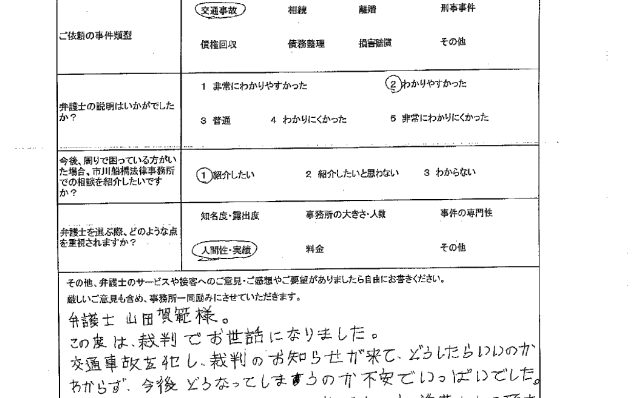 交通事故 相続 離婚 刑事事件
ご依頼の事件類型
債権回収 債務整理 損害賠償 その他
1 非常にわかりやすかった 2 わかりやすかった
弁護士の説明はいかがでした
か？
3 普通 4 わかりにくかった 5 非常にわかりにくかった
今後、周りで困っている方がい
た場合、市川船橋法律事務所
での相談を紹介したいです
か？
1 紹介したい 2 紹介したいと思わない 3 わからない
知名度・露出度 事務所の大きさ・人数 事件の専門性
弁護士を選ぶ際、どのような点
を重視されますか？
人間性・実績 料金 その他
その他、弁護士のサービスや接客へのご意見・ご感想やご要望がありましたら自由にお書きください。
厳しいご意見も含め、事務所一同励みにさせていただきます。
弁護士 山田賀範様。
この度は、裁判でお世話になりました。
交通事故を犯し、裁判のお知らせが来て、どうしたらいいのか
わからず、今後どうなってしまうのか不安でいっぱいでした。